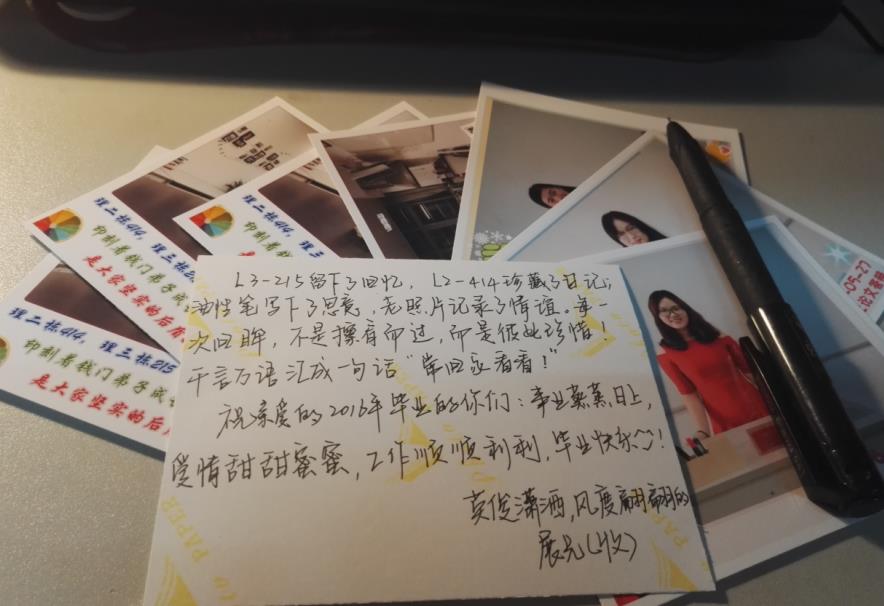 理二栋414，理三栋2
印制着我门弟子
是大家坚实的后
理二栋414，理三栋
印制着
理二栋414，理三栋215
印制着我门弟子成
是大家坚实的后盾
05-27
L3-215留下了回忆，L2-414珍藏了日记；
油性笔写下了思念，老照片记录了情谊。每一
次回眸，不是擦肩而过，而是彼此珍惜！
千言万语汇成一句话“常回家看看！”
祝亲爱的2016年毕业的你们：事业蒸蒸日上，
爱情甜甜蜜蜜，工作顺顺利利，毕业快乐！
英俊潇洒，风度翩翩的
(收)
PAPER